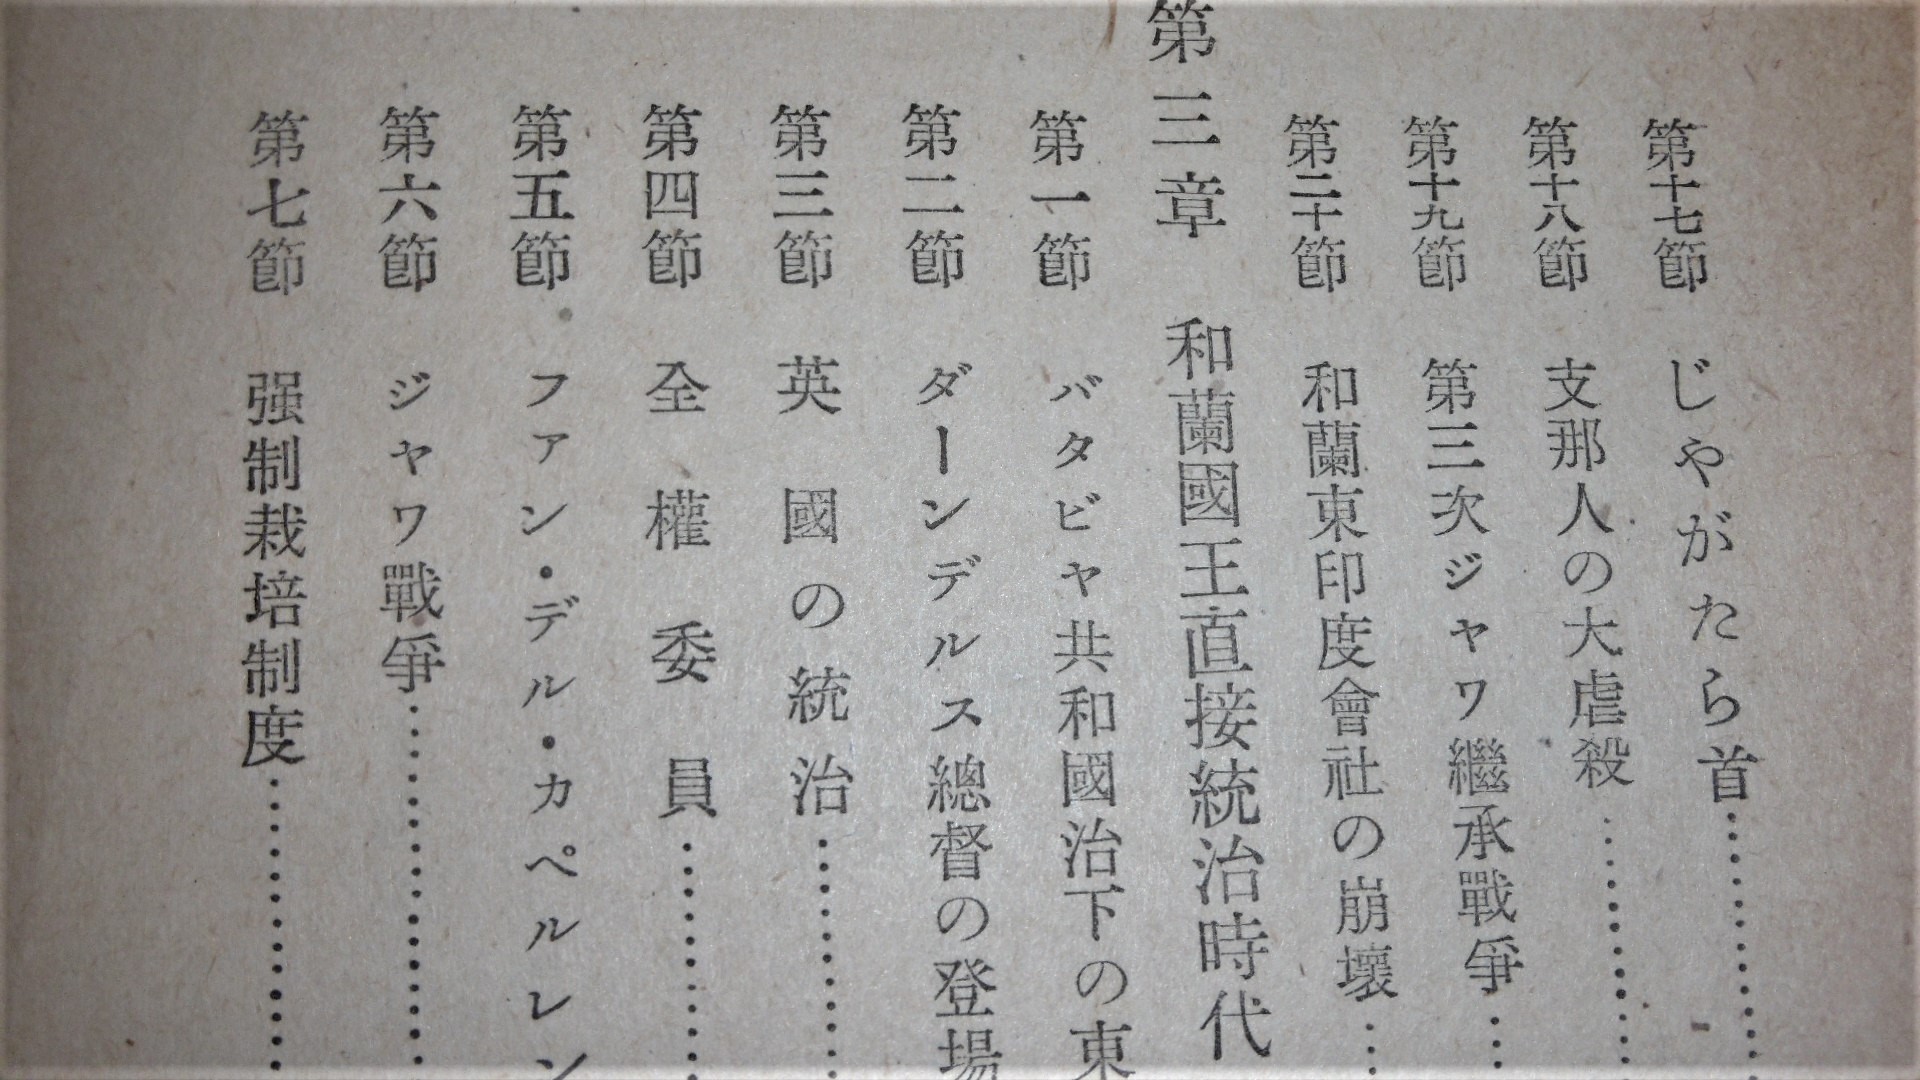 第十七節 じやがたら首……………
第十八節 支那人の大虐殺……………
第十九節 第三次ジャワ繼承戰爭……
第二十節 和蘭東印度會社の崩壞……
第三章 和蘭國王直接統治時代
第一節 バタビヤ共和國治下の東
第二節 ダーンデルス總督の登場
第三節 英國の統治……………
第四節 全權委員……………
第五節 ファン・デル・カペルレン
第六節 ジャワ戰爭……………
第七節 强制栽培制度……………